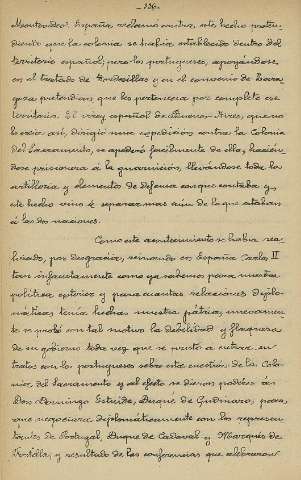 - 136 -
Montevideo. España reclamó contra este hecho preten-
diendo que la colonia se había establecido dentro del
territorio español, pero los portugueses, apoyándose
en el tratado de Tordesillas y en el convenio de Zara-
goza pretendían que les pertenecía por completo ese
territorio. El virrey español de Buenos Aires, que no
lo creía así, dirigió una expedición contra la Colonia
del Sacramento, se apoderó fácilmente de ella, hacién-
dose prisionera á la guarnición, llevándose toda la
artillería y elementos de defensa con que contaba y,
este hecho vino á separar mas aun de lo que estaban
á las dos naciones.
Como este acontecimiento se había rea-
lizado, por desgracia, reinando en España Carlos II
tan infaustamente como ya sabemos para nuestra
política exterior y para cuantas relaciones diplo-
máticas tenía hechas nuestra patria, nuevamen-
te se probó con tal motivo la debilidad y flaqueza
de su gobierno toda vez que se prestó a entrar en
tratos con los portugueses sobre esta cuestión de la Colo-
nia del Sacramento y al efecto se dieron poderes á
Don Domingo Estuide, Duque de Giovinazo, para
que negociara diplomáticamente con los represen-
tantes de Portugal, Duque de Cadaval y Marqués de
Fronteira, y resultado de las conferencias que celebraron